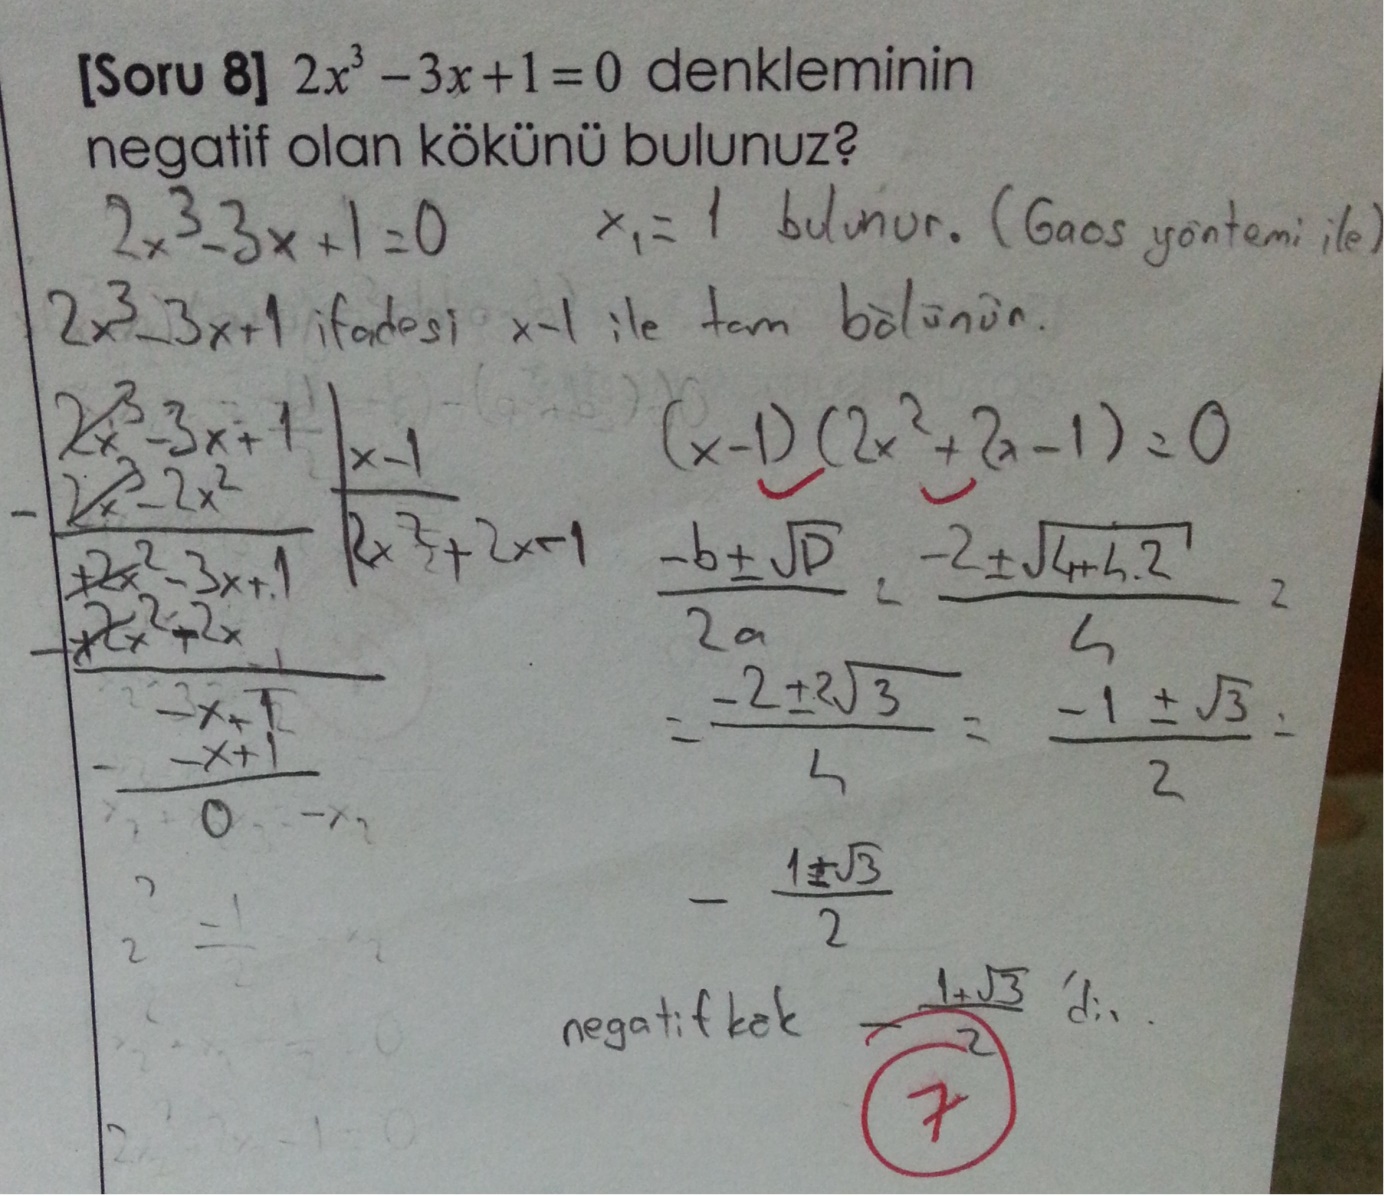 [Soru 8] 2x³ – 3x + 1 = 0 denkleminin
negatif olan kökünü bulunuz?
2x³-3x+1=0 x₁=1 bulunur. (Gaos yöntemi ile)
2x³-3x+1 ifadesi x-1 ile tam bölünür.
2x³-3x+1 | x-1
- 2x³-2x² | 2x²+2x-1
+2x²-3x+1
- +2x²-2x
-x+1
- -x+1
0
(x-1)(2x²+2x-1)=0
(-b±√D)/2a = (-2±√(4+4.2))/4 =
= (-2±2√3)/4 = (-1±√3)/2 =
- (1±√3)/2
negatif kök - (1+√3)/2 'dir.
7